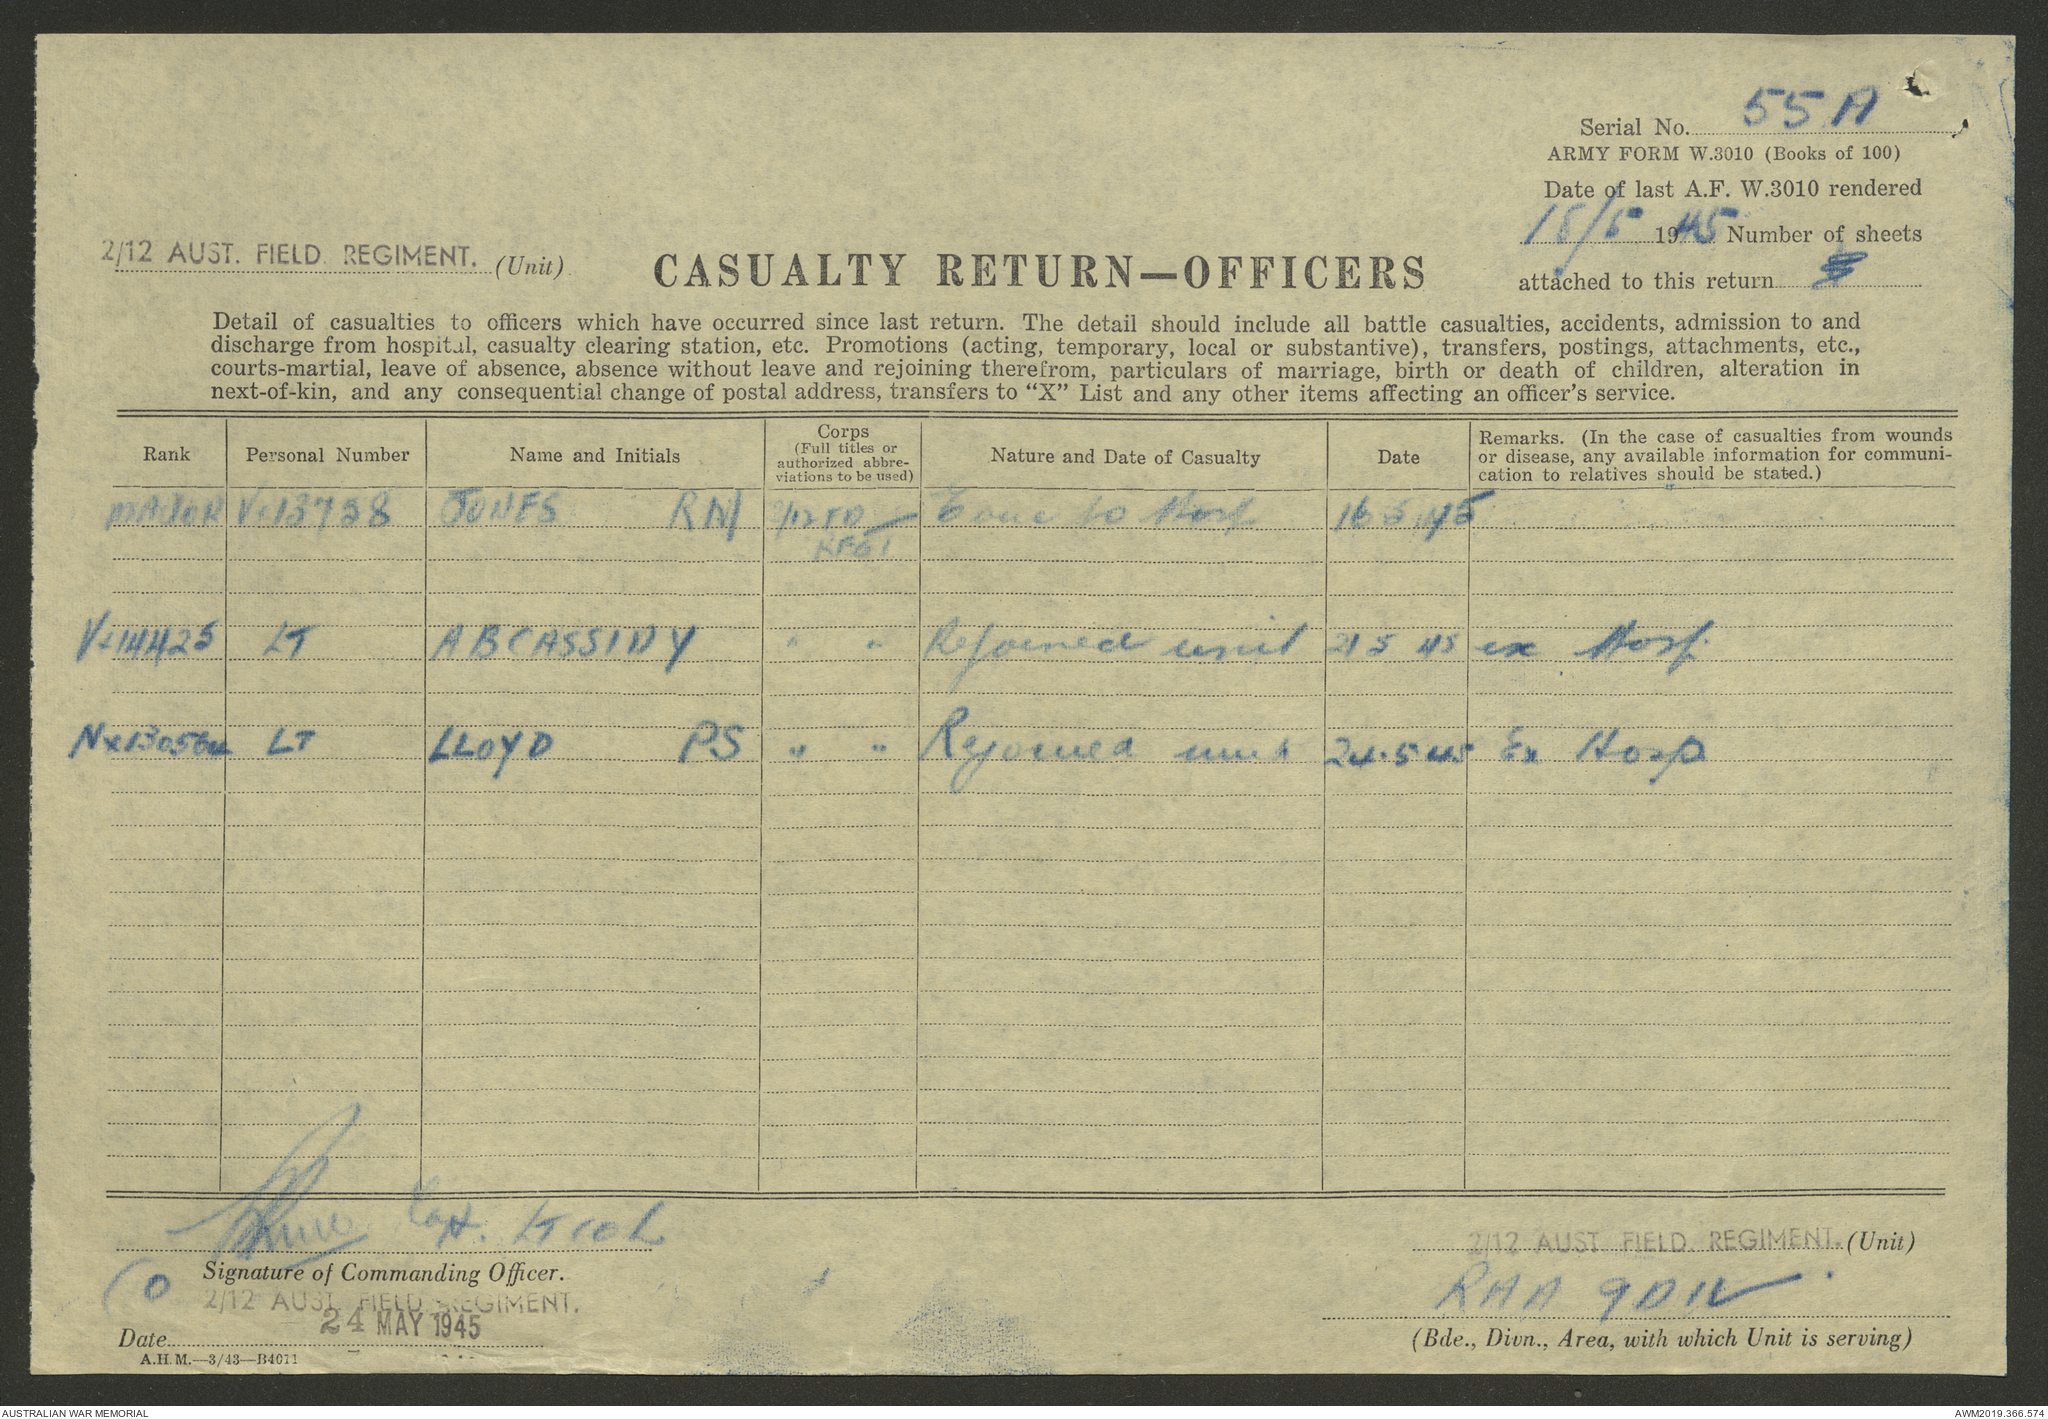 Serial No. 55A
ARMY FORM W.3010 (Books of 100)
Date of last A.F. W.3010 rendered
18/5 1945 Number of sheets
attached to this return
2/12 AUST. FIELD REGIMENT. (Unit)
CASUALTY RETURN—OFFICERS
Detail of casualties to officers which have occurred since last return. The detail should include all battle casualties, accidents, admission to and
discharge from hospital, casualty clearing station, etc. Promotions (acting, temporary, local or substantive), transfers, postings, attachments, etc.,
courts-martial, leave of absence, absence without leave and rejoining therefrom, particulars of marriage, birth or death of children, alteration in
next-of-kin, and any consequential change of postal address, transfers to "X" List and any other items affecting an officer's service.
Rank Personal Number Name and Initials Corps (Full titles or authorized abbreviations to be used) Nature and Date of Casualty Date Remarks. (In the case of casualties from wounds or disease, any available information for communication to relatives should be stated.)
MAJOR Vx13738 JONES RN 2/12 FD Evac to Hosp 16 5 45
REGT
Vx14425 LT AB CASSIDY " " Rejoined unit 21 5 45 ex Hosp
Nx130564 LT LLOYD PS " " Rejoined unit 24.5 45 Ex Hosp
Capt. Lt Col
Signature of Commanding Officer.
CO
2/12 AUST. FIELD REGIMENT.
Date 24 MAY 1945
A.H.M.—3/43—B4071
2/12 AUST FIELD REGIMENT. (Unit)
RAA 9 DIV
(Bde., Divn., Area, with which Unit is serving)
AUSTRALIAN WAR MEMORIAL
AWM2019.366.574